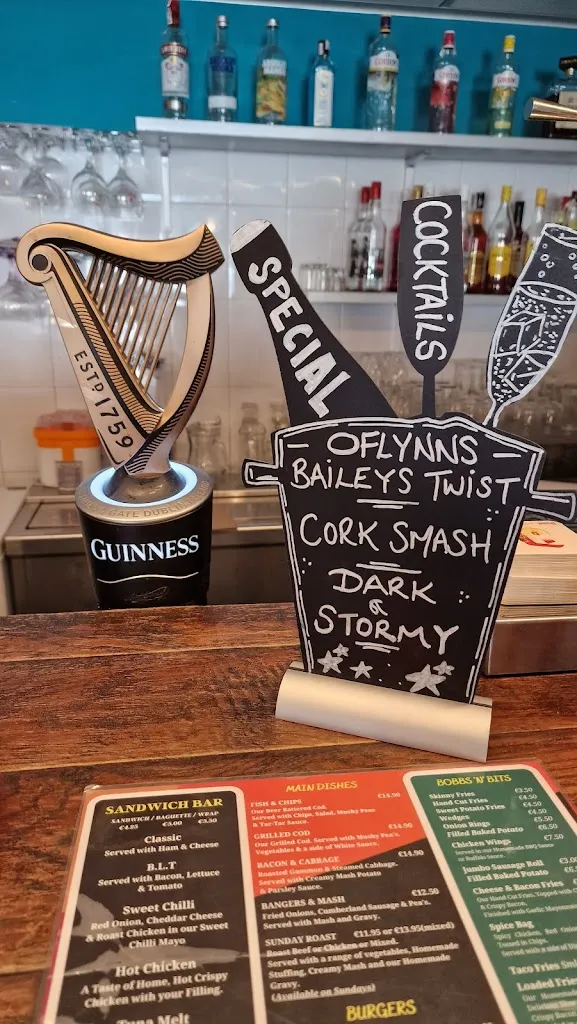 ESTD 1759
GUINNESS
SPECIAL
COCKTAILS
OFLYNNS
BAILEYS TWIST
CORK SMASH
DARK
&
STORMY
SANDWICH BAR
SANDWICH / BAGUETTE / WRAP
€4.25 €5.00 €5.50
Classic
Served with Ham & Cheese
B.L.T
Served with Bacon, Lettuce
& Tomato
Sweet Chilli
Red Onion, Cheddar Cheese
& Roast Chicken in our Sweet
Chilli Mayo
Hot Chicken
A Taste of Home, Hot Crispy
Chicken with your Filling.
Tuna Melt
MAIN DISHES
FISH & CHIPS €14.90
Our Beer Battered Cod.
Served with Chips, Salad, Mushy Peas
& Tar-Tar Sauce.
GRILLED COD €14.90
Our Grilled Cod. Served with Mushy Pea's.
Vegetables & a side of White Sauce.
BACON & CABBAGE €14.90
Roasted Gammon & Steamed Cabbage.
Served with Creamy Mash Potato
& Parsley Sauce.
BANGERS & MASH €12.50
Fried Onions, Cumberland Sausage & Pea's.
Served with Mash and Gravy.
SUNDAY ROAST €11.95 or €13.95(mixed)
Roast Beef or Chicken or Mixed.
Served with a range of vegetables, Homemade
Stuffing, Creamy Mash and our Homemade
Gravy.
(Available on Sundays)
BURGERS
BOBBS 'N' BITS
Skinny Fries €3.50
Hand Cut Fries €4.50
Sweet Potato Fries €4.50
Wedges €4.50
Onion Rings €5.50
Filled Baked Potato €6.50
Chicken Wings €7.50
Served in our Homemade BBQ Sauce
or Buffalo Sauce.
Jumbo Sausage Roll
Filled Baked Potato
Cheese & Bacon Fries
& Crispy Bacon.
Spice Bag
Taco Fries
Loaded Fries